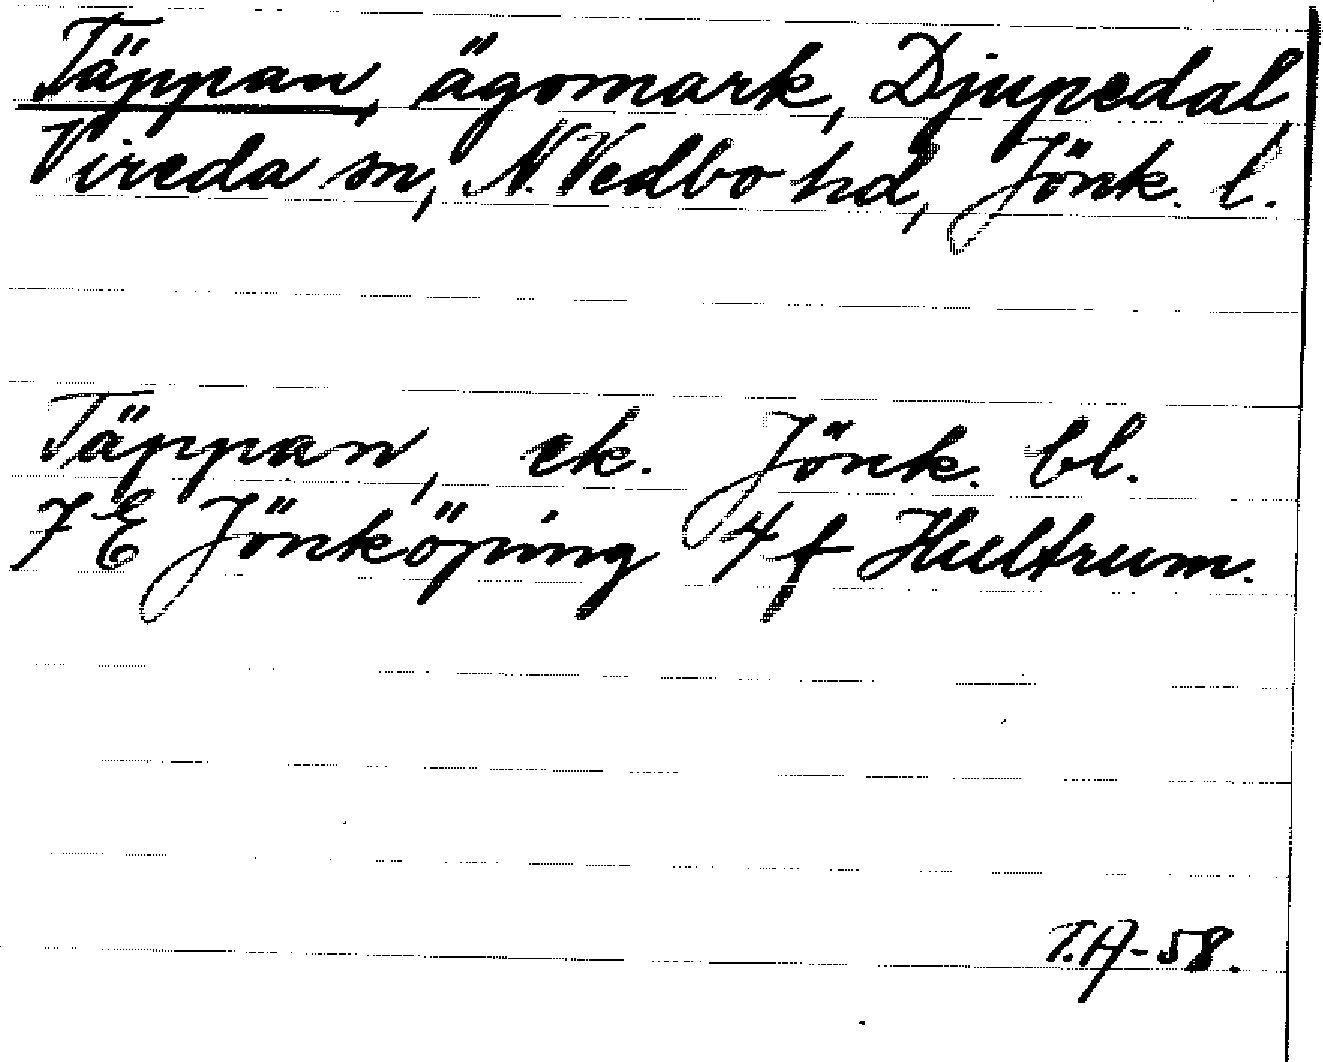 Täppan, ägomark, Djupedal,
Vireda sn, N. Vedbo hd, Jönk. l.
Täppan, ek. Jönk. bl.
7 E Jönköping 4 f Hultrum.
T.A-58.